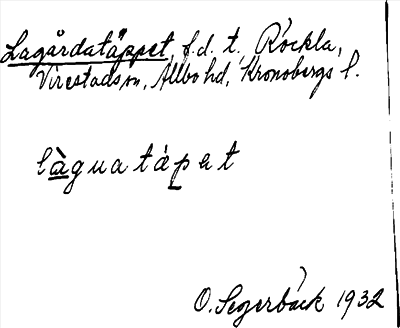 Lagårdatäppet, f.d. t. Röckla,
Virestads sn, Allbo hd, Kronobergs l.
làguatápet
O. Segerbäck 1932